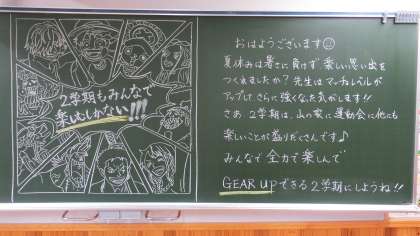 2学期もみんなで
楽しむしかない!!!
おはようございます☺
夏休みは暑さに負けず楽しい思い出を
つくれましたか？先生はマッチョレベルが
アップして、さらに強くなった気がします!!
さあ2学期は、山の家に運動会に他にも
楽しいことが盛りだくさんです♪
みんなで全力で楽しんで
GEAR UPできる2学期にしようね!!